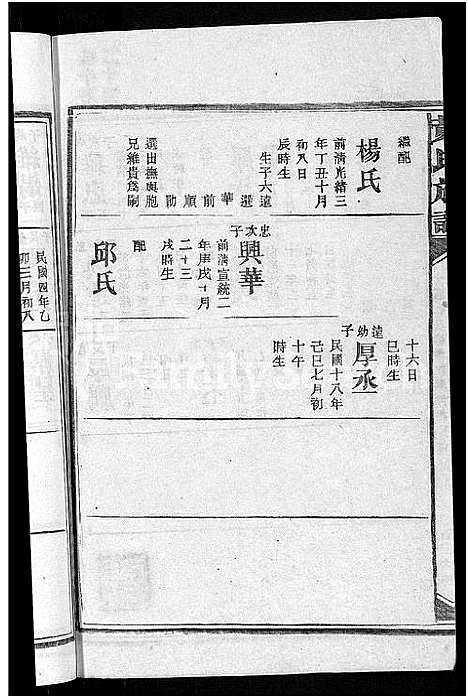 繼配
楊氏
前清光緒三
年丁丑十月
初八日
辰時生
生子六遠
選華前順勛
選出撫與胞
兄維貴爲嗣
忠次子
興華
前清宣統二
年庚戌十月
二十三
戌時生
配
邱氏
十六日
巳時生
遠幼子
厚丞
民國十八年
己巳七月初
十午
時生
民國四年乙
卯三月初八
氏族譜